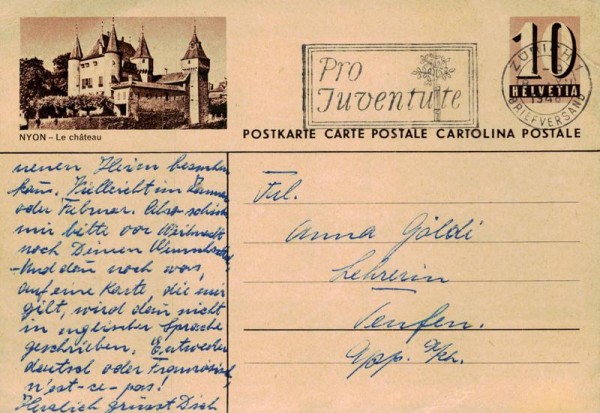 NYON – Le château
Pro
Juventute
10
HELVETIA
ZÜRICH
BRIEFVERSAND
POSTKARTE CARTE POSTALE CARTOLINA POSTALE
neuen Heim besuchen
kann. Vielleicht im Januar
oder Februar. Also schick
mir bitte vor Weihnacht
noch Deinen
- Und dann noch was,
auf eine Karte die mir
gilt, wird dann nicht
in englischer Sprache
geschrieben. Entweder
deutsch oder Französisch,
n'est-ce-pas!
Herzlich grüsst Dich
Frl.
Anna Göldi
Lehrerin
Teufen.
App.